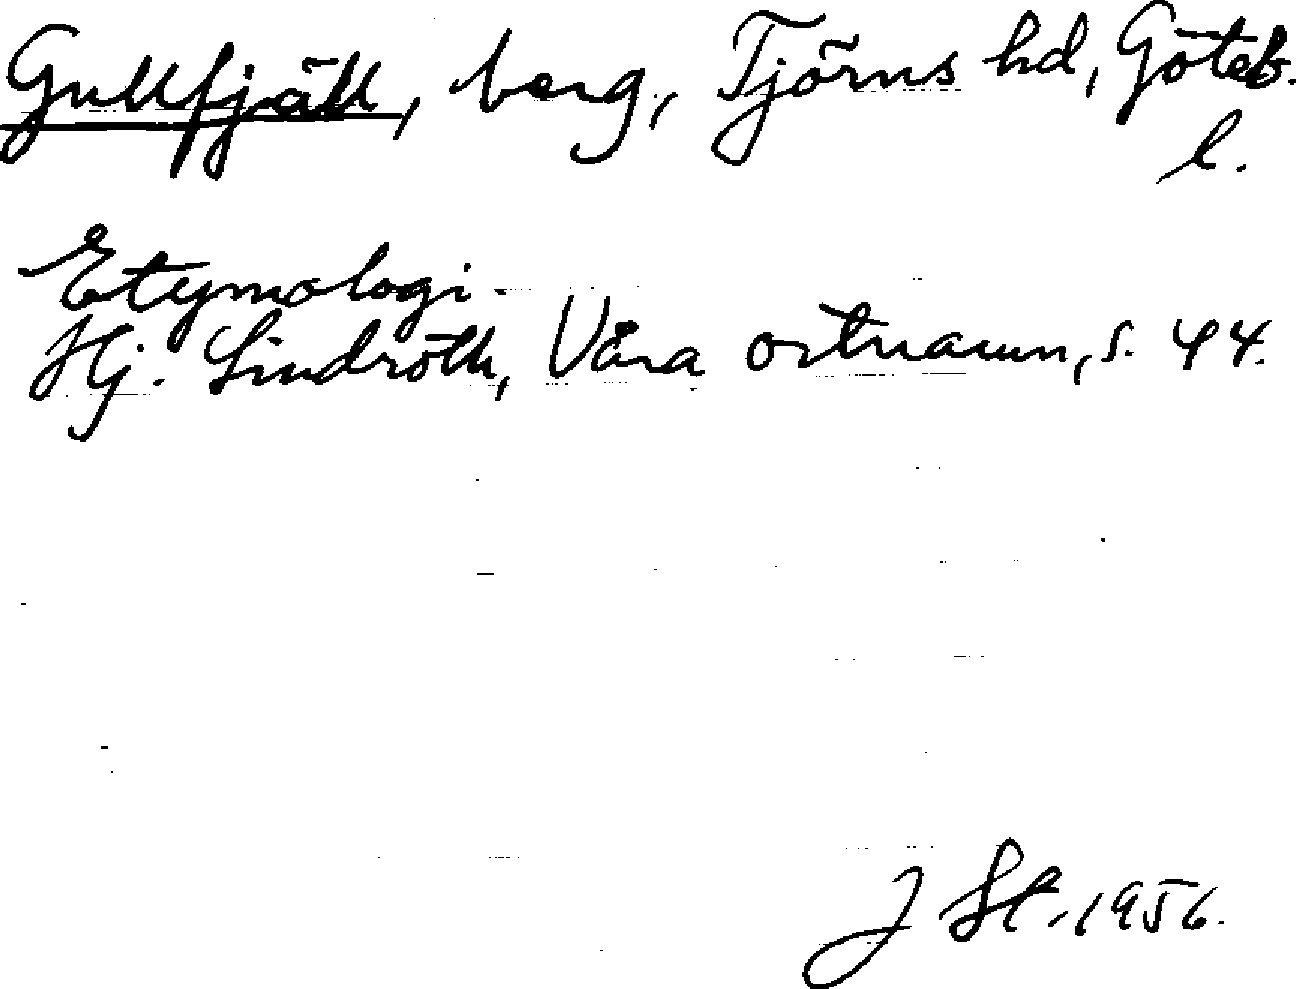 Gullfjäll, berg, Tjörns hd, Göteb.
l.
Etymologi.
Hj. Lindroth, Våra ortnamn, s. 44.
J St. 1956.